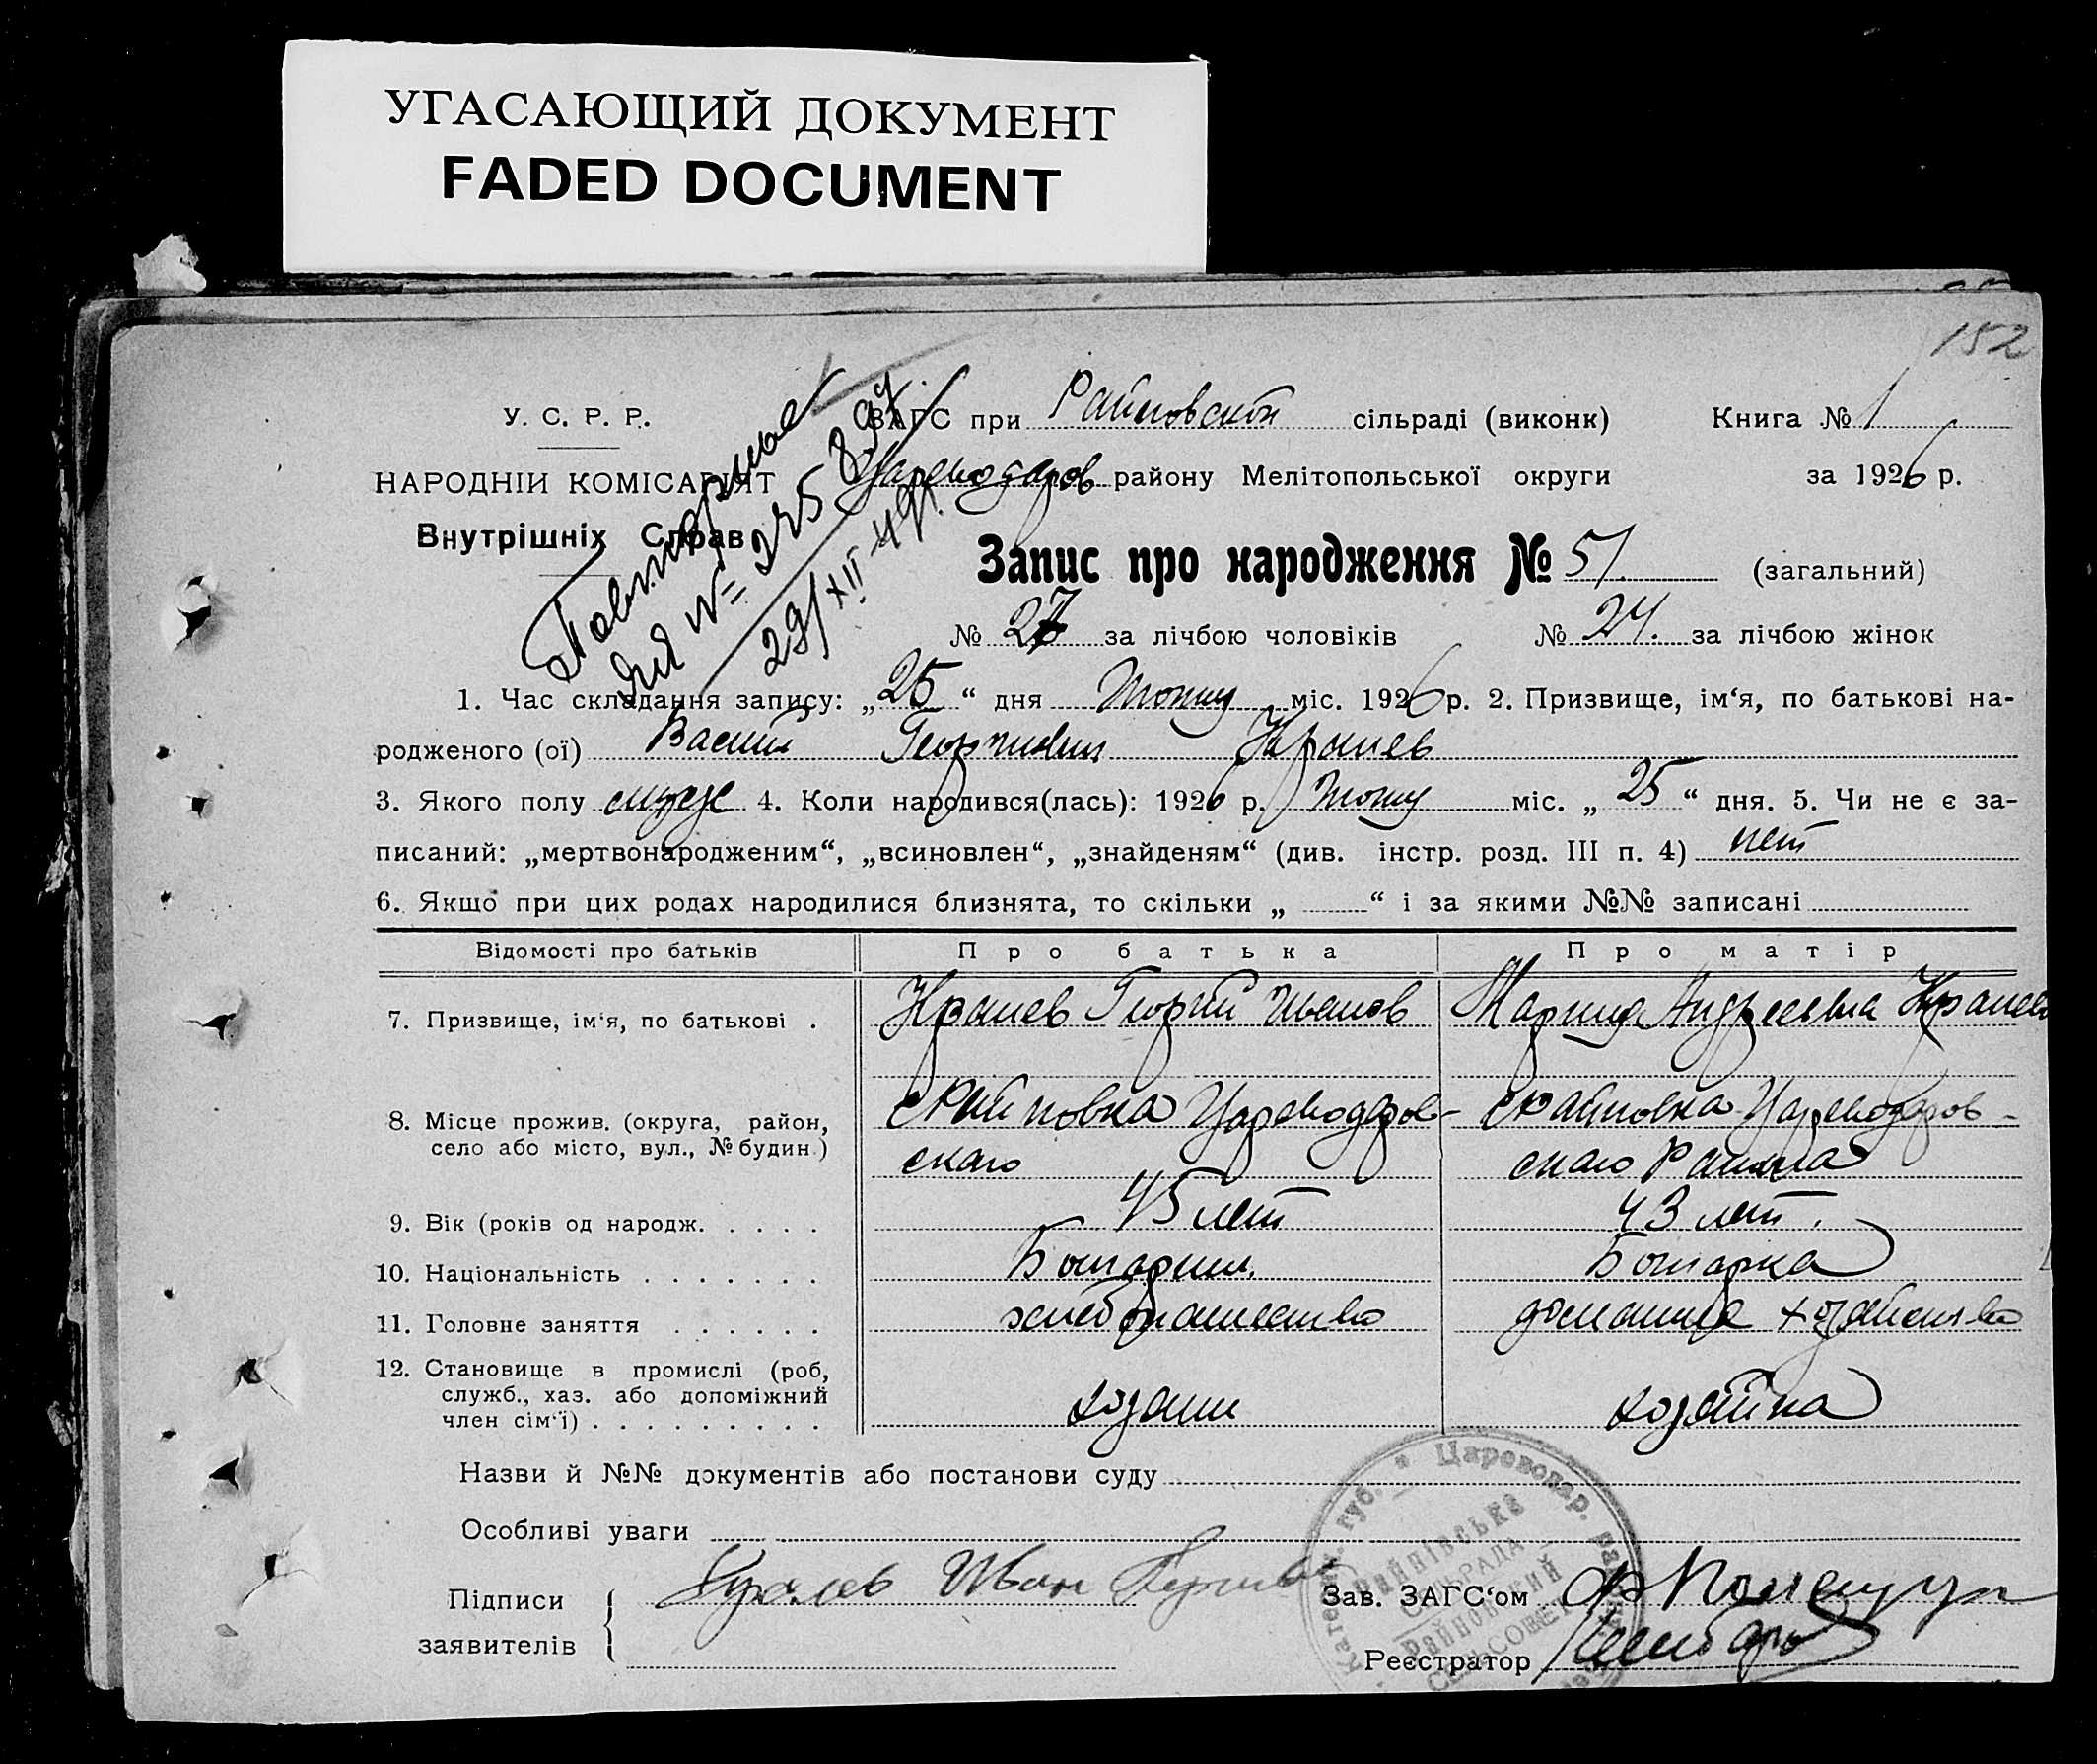 УГАСАЮЩИЙ ДОКУМЕНТ
FADED DOCUMENT
152
У. С. Р. Р. ЗАГС при Райновской сільраді (виконк) Книга № 1
НАРОДНІЙ КОМІСАРІЯТ Цареводаров району Мелітопольської округи за 1926 р.
Внутрішніх Справ
Повторные
для № 245897
29/XII-49г.
Запис про народження № 51. (загальний)
№ 27 за лічбою чоловіків № 24. за лічбою жінок
1. Час складання запису: „25“ дня міс. 1926 р. 2. Призвище, ім‘я, по батькові на-
родженого (ої) Василий Георгиевич
3. Якого полу муж 4. Коли народився(лась): 1926 р. міс. „25“ дня. 5. Чи не є за-
писаний: „мертвонародженим“, „всиновлен“, „знайденям“ (див. інстр. розд. III п. 4) нет
6. Якщо при цих родах народилися близнята, то скільки „ “ і за якими №№ записані
Відомості про батьків Про батька Про матір
7. Призвище, ім‘я, по батькові . Георгий Иванов Марица Андреевна
8. Місце прожив. (округа, район, с Райновка Цареводаров- с Райновка Цареводаров-
село або місто, вул., № будин.) скаго скаго Района
9. Вік (років од народж. . . . . 45 лет 43 лет.
10. Національність . . . . . . . Болгарин. Болгарка
11. Головне заняття . . . . . . хлебопашество домашнее хозяйство
12. Становище в промислі (роб,
служб., хаз. або допоміжний
член сім‘ї) . . . . . . . . . хозяин хозяйка
Назви й №№ документів або постанови суду
Особливі уваги
Підписи Иван Зав. ЗАГС‘ом
заявителів Реєстратор
Катерин. губ. * Цареводар. район
Райнівська
СІЛЬРАДА
Райновский
СЕЛЬСОВЕТ